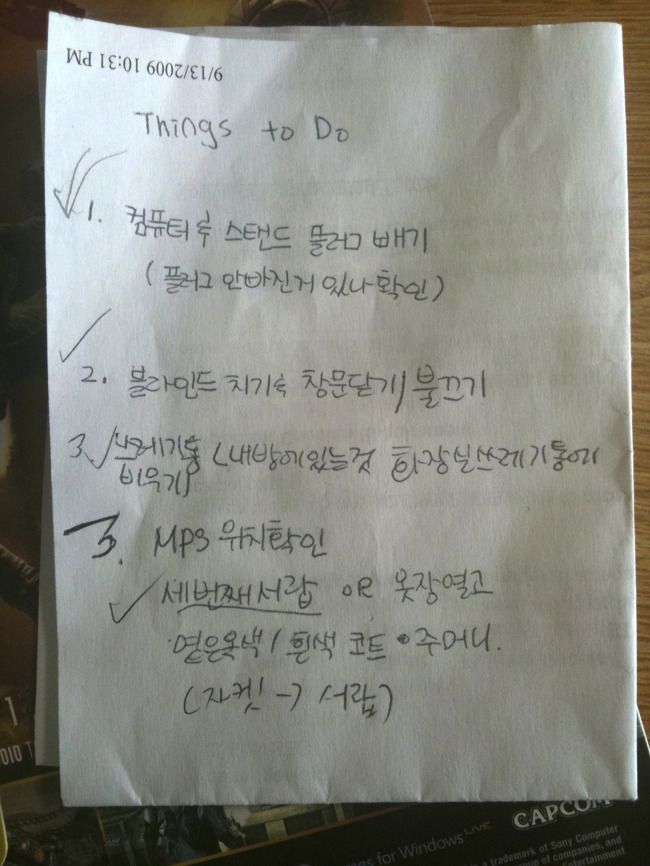 9/13/2009 10:31 PM
Things to Do
1. 컴퓨터 & 스탠드 플러그 빼기
(플러그 안빠진거 있나 확인)
2. 블라인드 치기 & 창문닫기/불끄기
3. 쓰레기통 (내방에있는것 화장실쓰레기통에
비우기)
3. MP3 위치확인
세번째서랍 OR 옷장열고
옅은옥색/흰색 코트 주머니.
(자켓! → 서랍)
1
DIO T
es for Windows LIVE
CAPCOM
a trademark of Sony Computer
of companies, and
Entertainment